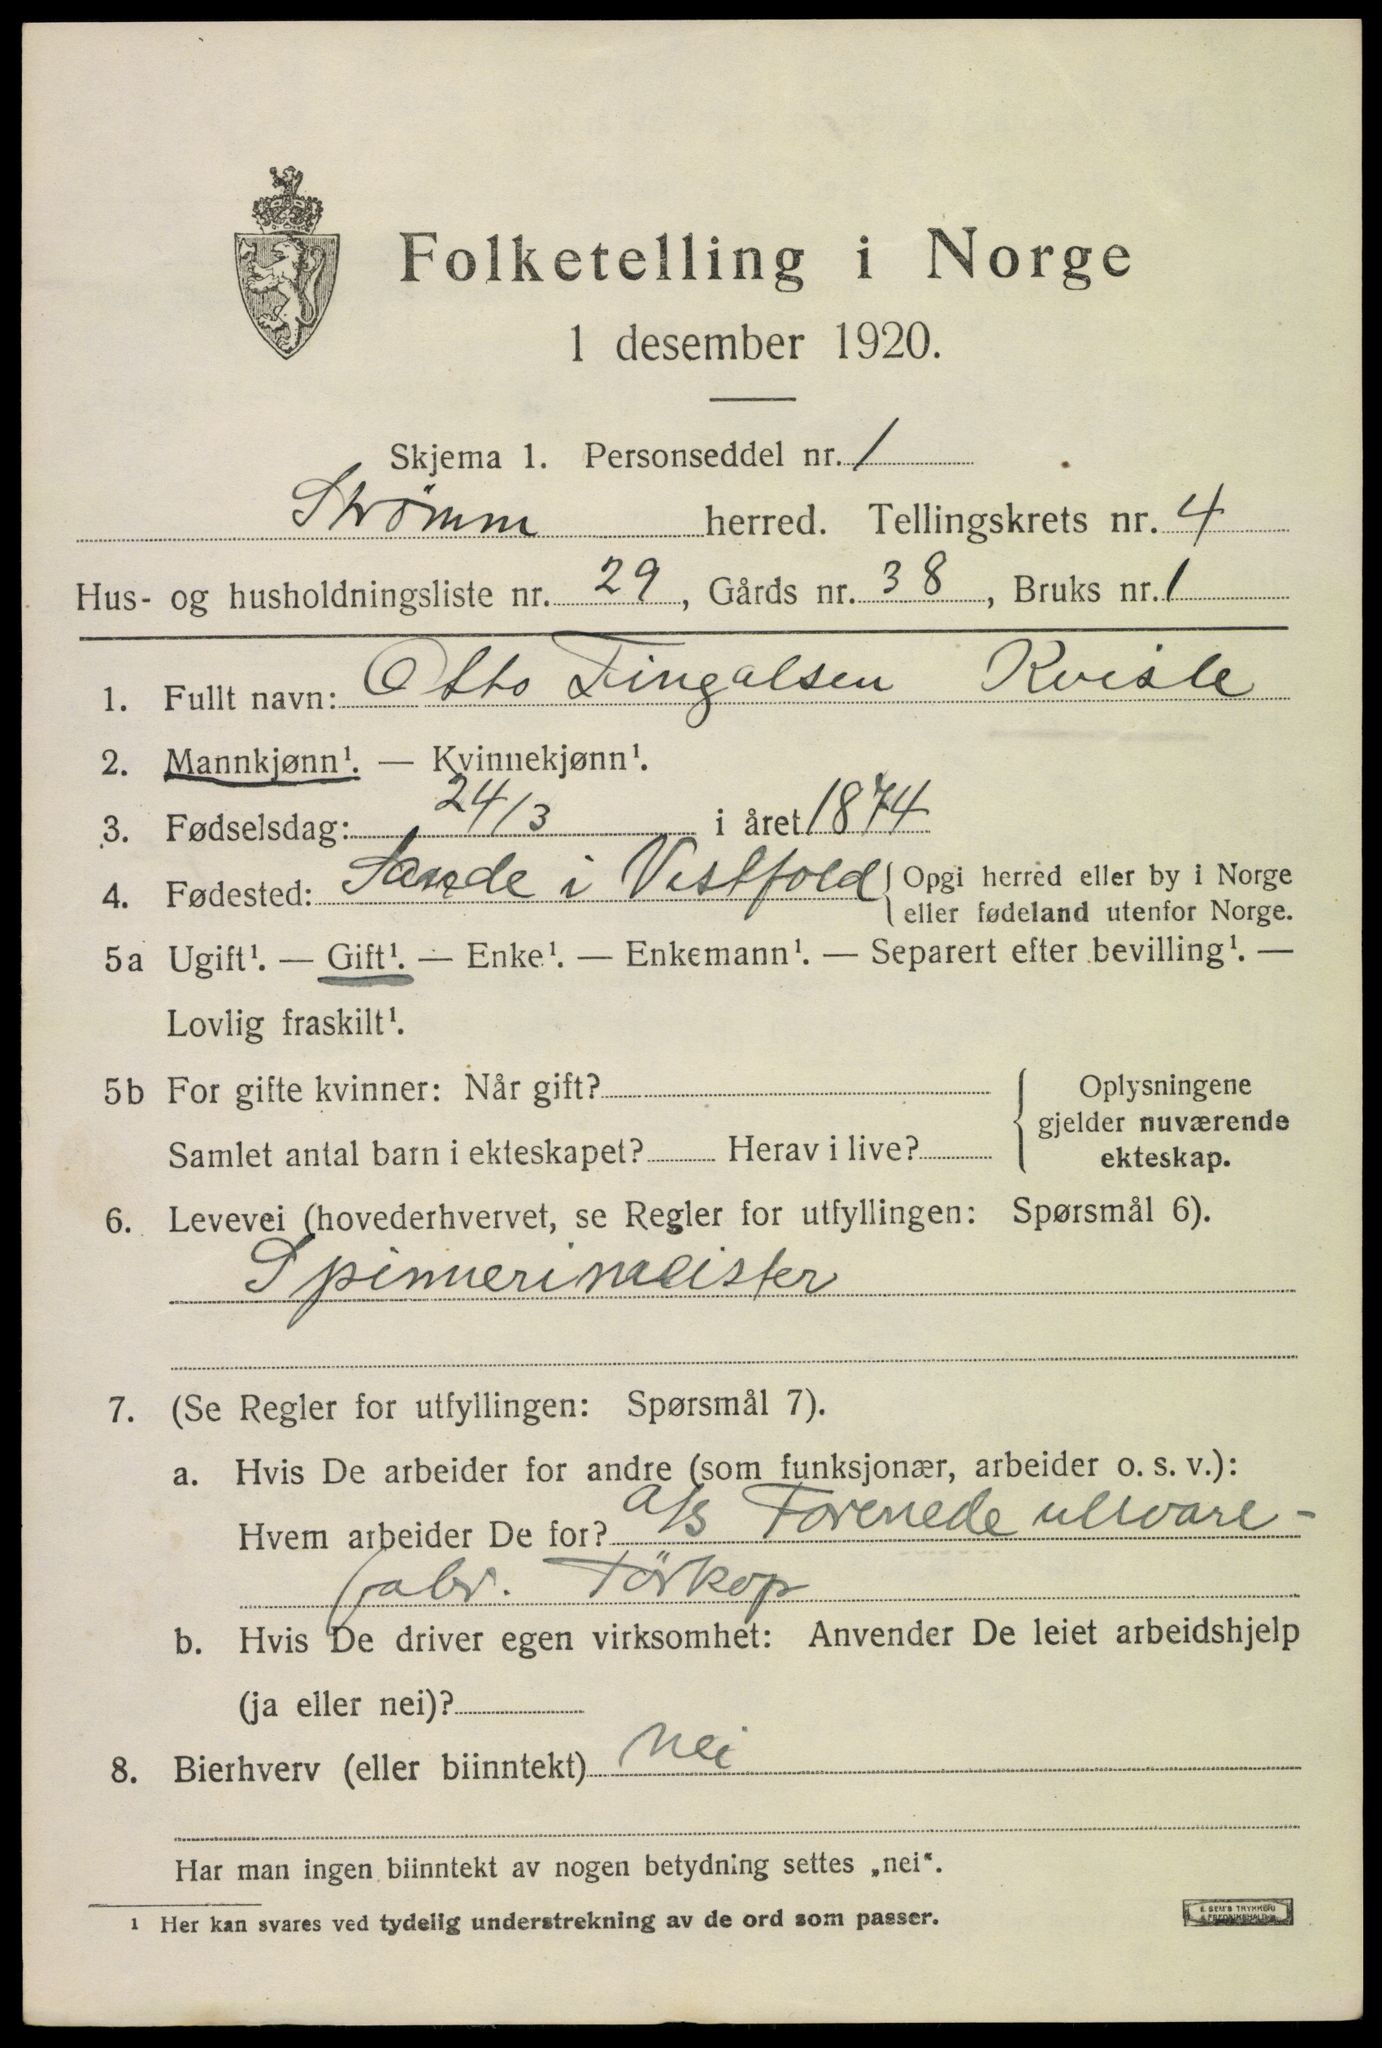 Folketelling i Norge
1 desember 1920.
Skjema 1. Personseddel nr. 1
Strømm herred. Tellingskrets nr. 4
Hus- og husholdningsliste nr. 29, Gårds nr. 38, Bruks nr. 1
1. Fullt navn: Otto Fingalsen Kvisle
2. Mannkjønn¹. — Kvinnekjønn¹.
3. Fødselsdag: 24/3 i året 1874
4. Fødested: Sande i Vestfold { Opgi herred eller by i Norge
eller fødeland utenfor Norge.
5a Ugift¹. — Gift¹. — Enke¹. — Enkemann¹. — Separert efter bevilling¹. —
Lovlig fraskilt¹.
5b For gifte kvinner: Når gift?
Samlet antal barn i ekteskapet? Herav i live?
{ Oplysningene
gjelder nuværende
ekteskap.
6. Levevei (hovederhvervet, se Regler for utfyllingen: Spørsmål 6).
Spinnerimeister
7. (Se Regler for utfyllingen: Spørsmål 7).
a. Hvis De arbeider for andre (som funksjonær, arbeider o. s. v.):
Hvem arbeider De for? a/s Forenede ulvare-
fabr. Törkop
b. Hvis De driver egen virksomhet: Anvender De leiet arbeidshjelp
(ja eller nei)?
8. Bierhverv (eller biinntekt) nei
Har man ingen biinntekt av nogen betydning settes „nei“.
1 Her kan svares ved tydelig understrekning av de ord som passer.
E. SEM'S TRYKKERI
FREDRIKSHALD